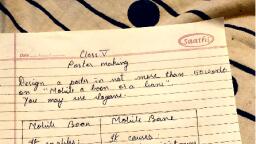 Saathi
Date
Class V
Poster making
Design a poster in not more than 50 words
on "Mobile a boon or a bane".
You may use slogans.
Mobile Boon Mobile Bane
It enables: It causes: